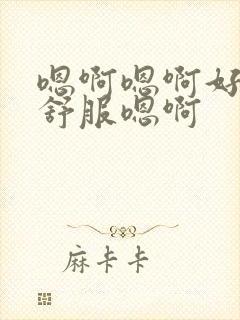 嗯啊嗯啊好
舒服嗯啊
麻卡卡